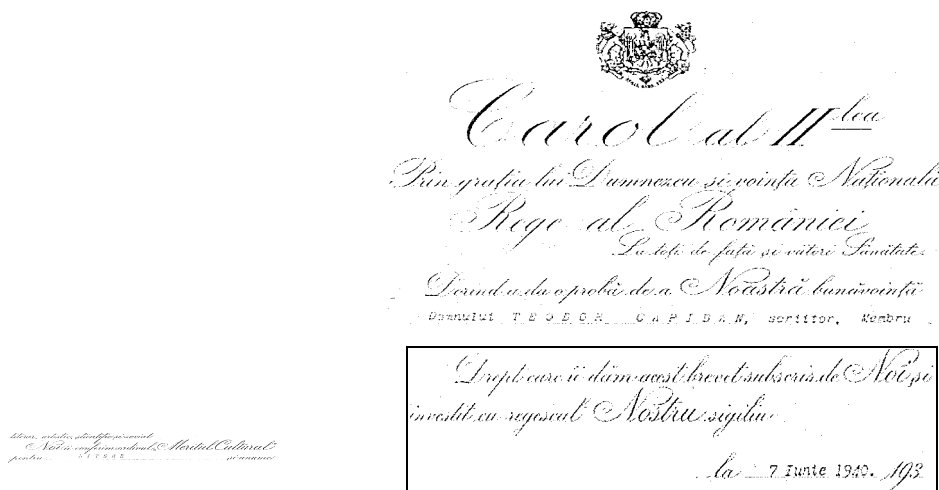 Carol al II lea
Prin grația lui Dumnezeu și voința Națională
Rege al României
La toți de față și viitori Sănătate.
Dorind a da o probă de a Noastră bunăvoință
Domnului TEODOR CAPIDAN, scriitor, Membru
Drept care îi dăm acest brevet subscris de Noi și
investit cu regescul Nostru sigiliu
la 7 Iunie 1940. 193
literar, artistic, științific și social
Noi îi conferim ordinul „Meritul Cultural”
pentru și anume